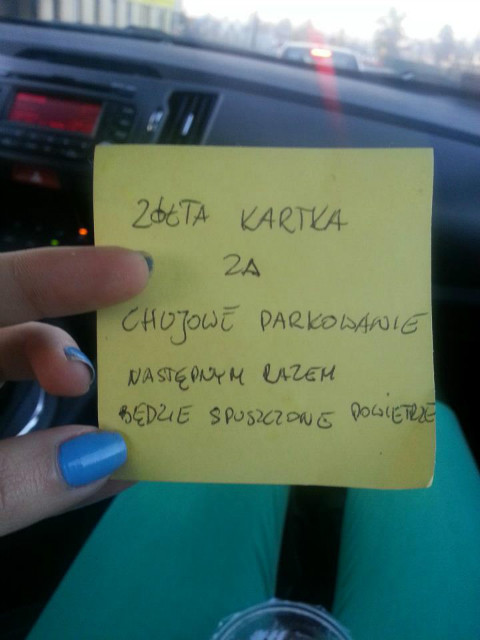 ŻÓŁTA KARTKA
ZA
CHUJOWE PARKOWANIE
NASTĘPNYM RAZEM
BĘDZIE SPUSZCZONE POWIETRZE